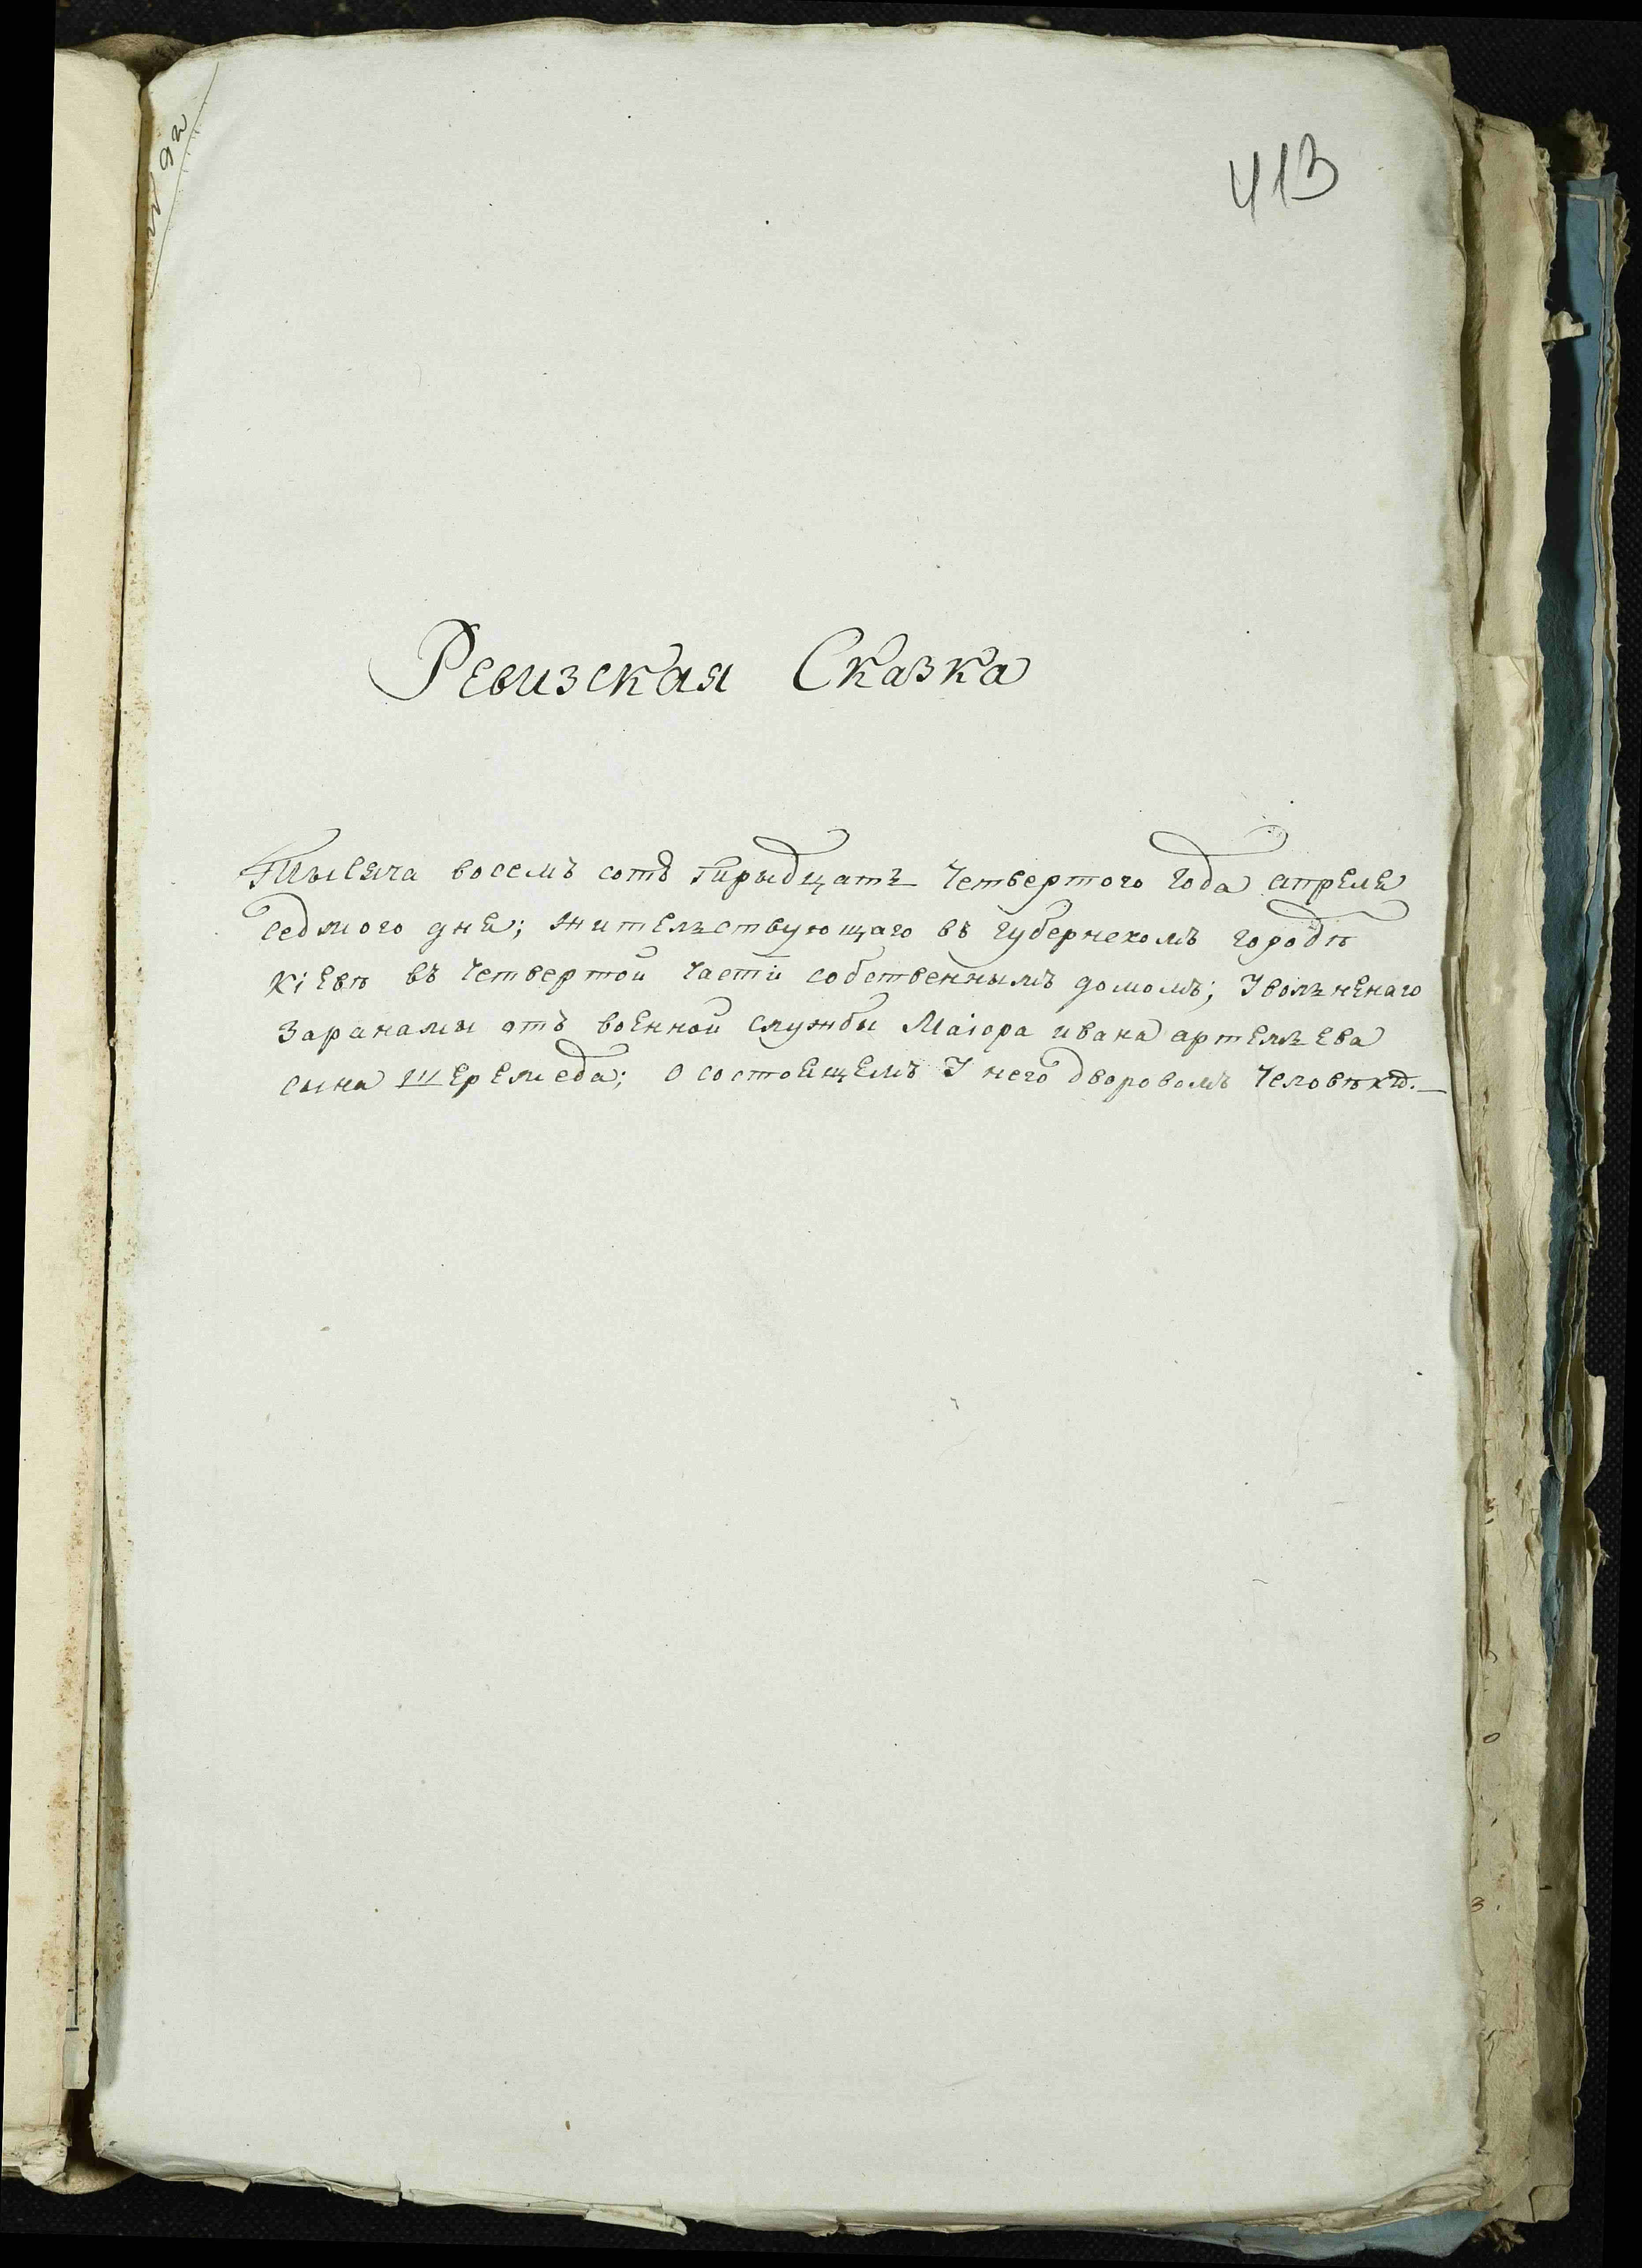 № 92
413
Ревизская Сказка
Тысяча восемъ сотъ трыдцать Четвертого Года апреля
седмого дня; жительствующаго въ губернскомъ городѣ
Кіевѣ въ Четвертой Части собственнымъ домомъ; Уволненаго
Заранамы отъ военной службы Маіора ивана артемьева
сына Шеремеда; О состоящемъ У него дворовомъ Человѣкѣ.—